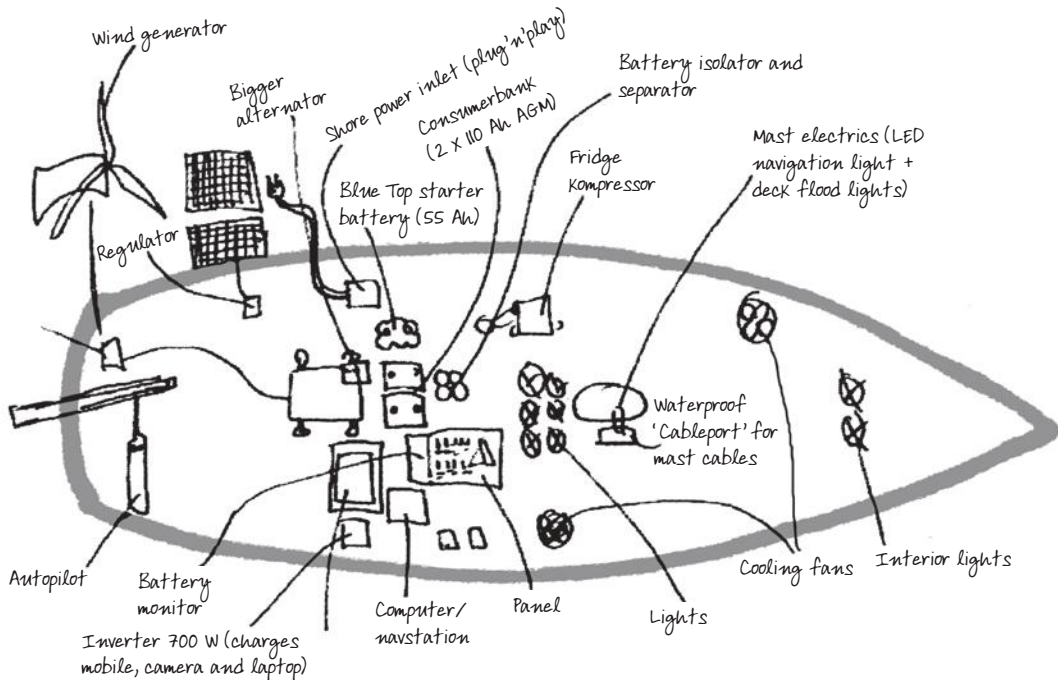 Wind generator
Bigger
alternator
Shore power inlet (plug'n'play)
Consumerbank
(2 X 110 Ah AGM)
Battery isolator and
separator
Mast electrics (LED
navigation light +
deck flood lights)
Fridge
Kompressor
Blue Top starter
battery (55 Ah)
Regulator
Waterproof
'Cableport' for
mast cables
Autopilot
Battery
monitor
Inverter 700 W (charges
mobile, camera and laptop)
Computer/
navstation
Panel
Lights
Cooling fans
Interior lights